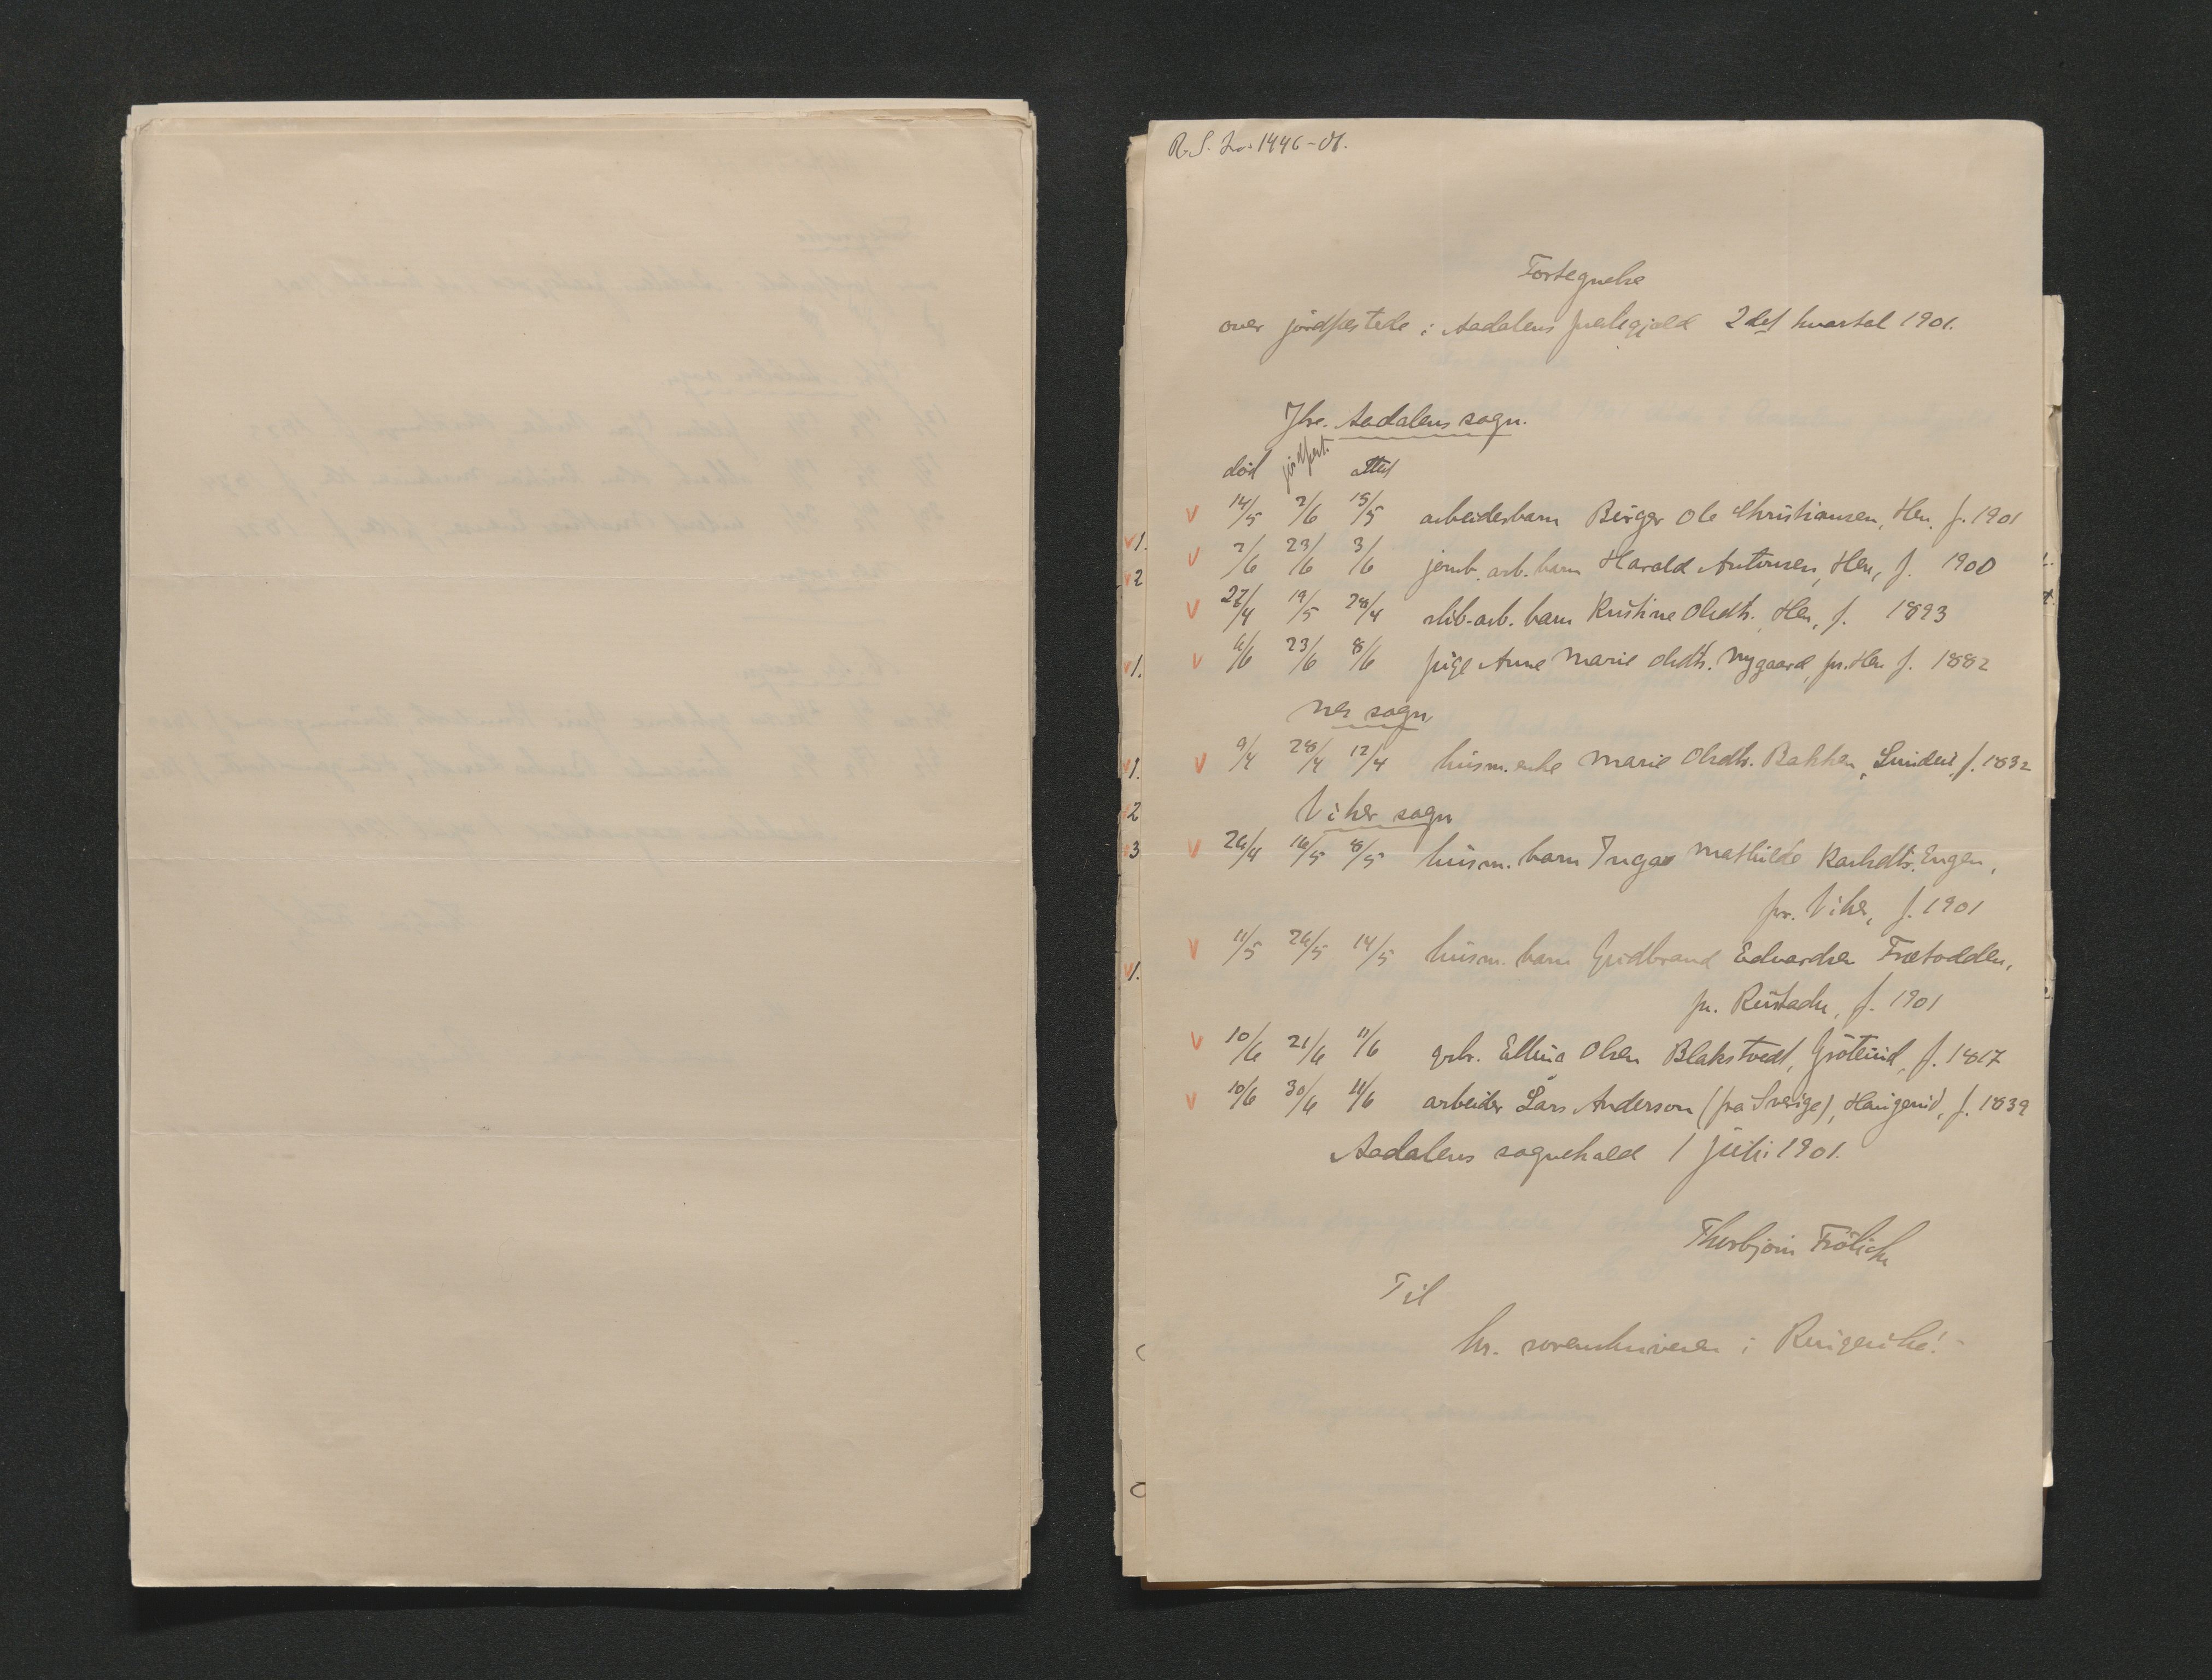 R.S. No. 1446-01.
Fortegnelse
over jordfæstede i Aadalens prestegjæld 2det kvartal 1901.
Ytre Aadalens sogn.
død jordfæst. attest
v 14/5 2/6 15/5 arbeiderbarn Birger Ole Christiansen, Hen, f. 1901
v 2/6 23/6 3/6 jernb.arb. barn Harald Antonsen, Hen, f. 1900
v 27/4 19/5 28/4 slib-arb. barn Kristine Olsdtr. Hen, f. 1893
v 6/6 23/6 8/6 pige Anne Marie Olsdtr. Nygaard, pr. Hen f. 1882
Nes sogn
v 9/4 28/4 12/4 husm.enke Marie Olsdtr. Bakken, f. 1832
Viker sogn
v 26/4 16/5 8/5 husm. barn Inga Mathilde Karlsdtr. Engen,
pr. Viker, f. 1901
v 11/5 26/5 14/5 husm. barn Gudbrand Edvardsen Frætodden,
pr. Rustader, f. 1901
v 10/6 21/6 11/6 grbr. Elling Olsen Blakstvedt, Grøterud, f. 1817
v 10/6 30/6 11/6 arbeider Lars Anderson (fra Sverige), Haugerud, f. 1839
Aadalens sognekald 1 juli 1901.
Thorbjørn Frölich
Til
hr. sorenskriveren i Ringerike!
v1.
v2
v1.
v1.
v2
v3
v1.